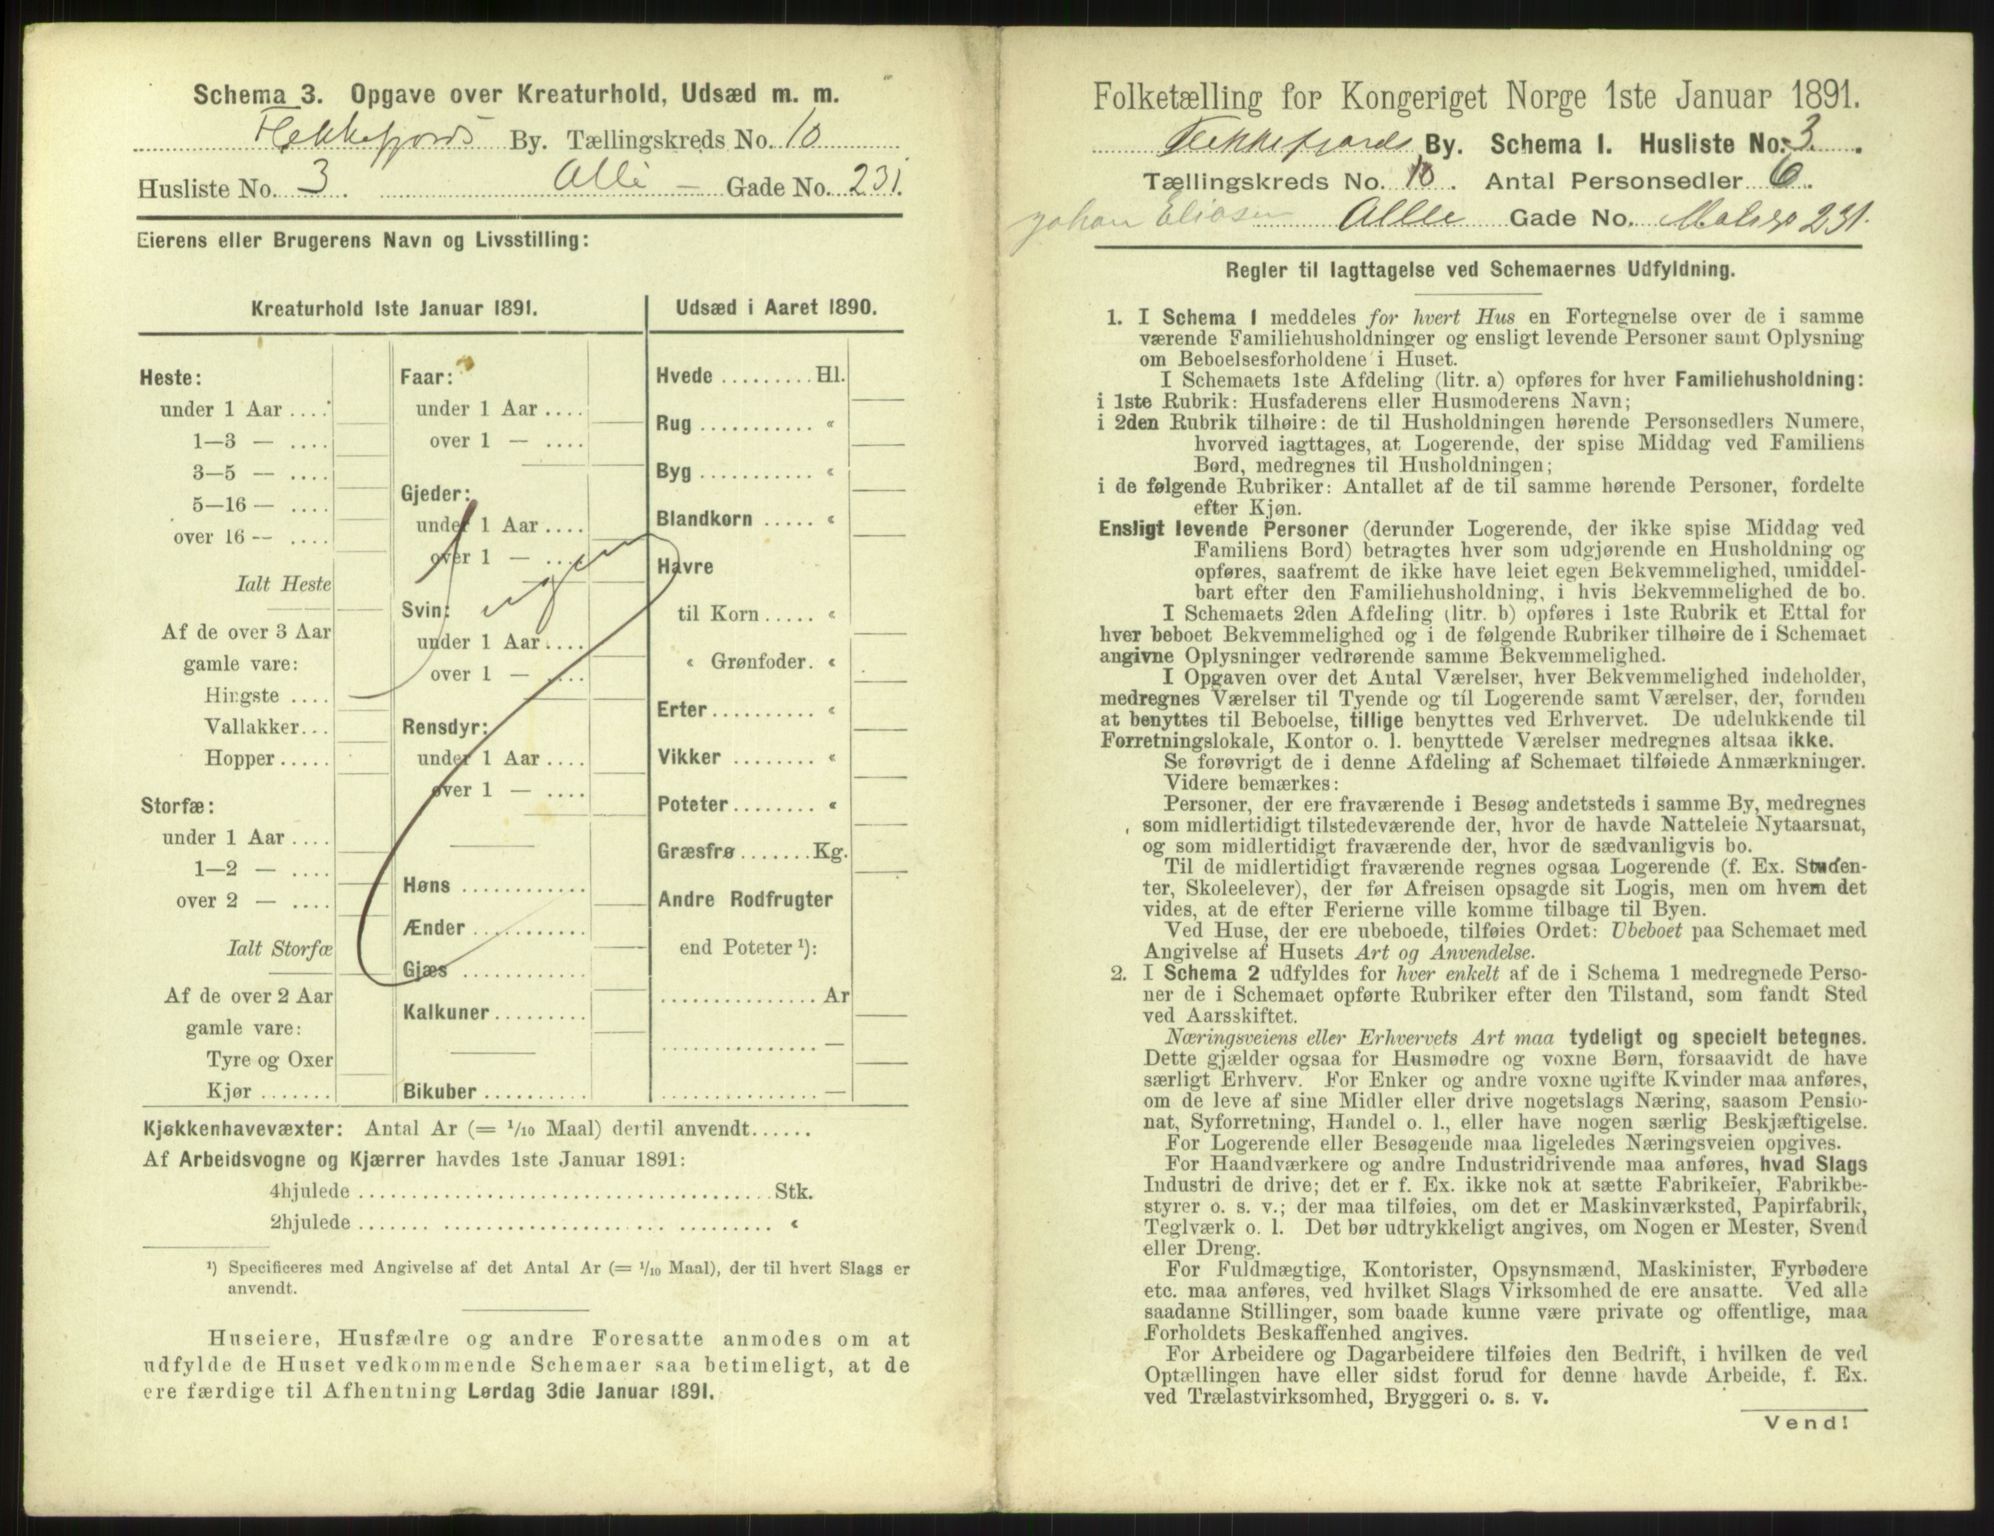 Schema 3. Opgave over Kreaturhold, Udsæd m. m.
Flekkefjords By. Tællingskreds No. 10
Husliste No. 3. Alle — Gade No. 231.
Eierens eller Brugerens Navn og Livsstilling:
Kreaturhold 1ste Januar 1891.
Heste:
under 1 Aar ....
1—3 — ....
3—5 — ....
5—16 — ....
over 16 — ....
Ialt Heste
Af de over 3 Aar
gamle vare:
Hingste ....
Vallakker...
Hopper.....
Storfæ:
under 1 Aar ....
1—2 — ....
over 2 — ....
Ialt Storfæ
Af de over 2 Aar
gamle vare:
Tyre og Oxer
Kjør .......
Faar:
under 1 Aar ....
over 1 — ....
Gjeder:
under 1 Aar ....
over 1 — ....
Svin:
under 1 Aar ....
over 1 — ....
Rensdyr:
under 1 Aar ....
over 1 — ....
Høns ............
Ænder ...........
Gjæs ............
Kalkuner.........
Bikuber ..........
Ingen
Udsæd i Aaret 1890.
Hvede ......... Hl.
Rug ........... «
Byg ........... «
Blandkorn ..... «
Havre
til Korn..... «
« Grønfoder. «
Erter.......... «
Vikker ........ «
Poteter........ «
Græsfrø.......Kg.
Andre Rodfrugter
end Poteter ¹):
............... Ar
............... —
............... —
Kjøkkenhavevæxter: Antal Ar (= 1/10 Maal) dertil anvendt......
Af Arbeidsvogne og Kjærrer havdes 1ste Januar 1891:
4hjulede ........................................ Stk.
2hjulede ........................................ «
¹) Specificeres med Angivelse af det Antal Ar (= 1/10 Maal), der til hvert Slags er
anvendt.
Huseiere, Husfædre og andre Foresatte anmodes om at
udfylde de Huset vedkommende Schemaer saa betimeligt, at de
ere færdige til Afhentning Lørdag 3die Januar 1891.
Folketælling for Kongeriget Norge 1ste Januar 1891.
Flekkefjords By. Schema I. Husliste No. 3.
Tællingskreds No. 10. Antal Personsedler 6.
Johan Eliasen Allee Gade No. 231.
Regler til Iagttagelse ved Schemaernes Udfyldning.
1. I Schema 1 meddeles for hvert Hus en Fortegnelse over de i samme
værende Familiehusholdninger og ensligt levende Personer samt Oplysning
om Beboelsesforholdene i Huset.
I Schemaets 1ste Afdeling (litr. a) opføres for hver Familiehusholdning:
i 1ste Rubrik: Husfaderens eller Husmoderens Navn;
i 2den Rubrik tilhøire: de til Husholdningen hørende Personsedlers Numere,
hvorved iagttages, at Logerende, der spise Middag ved Familiens
Bord, medregnes til Husholdningen;
i de følgende Rubriker: Antallet af de til samme hørende Personer, fordelte
efter Kjøn.
Ensligt levende Personer (derunder Logerende, der ikke spise Middag ved
Familiens Bord) betragtes hver som udgjørende en Husholdning og
opføres, saafremt de ikke have leiet egen Bekvemmelighed, umiddel-
bart efter den Familiehusholdning, i hvis Bekvemmelighed de bo.
I Schemaets 2den Afdeling (litr. b) opføres i 1ste Rubrik et Ettal for
hver beboet Bekvemmelighed og i de følgende Rubriker tilhøire de i Schemaet
angivne Oplysninger vedrørende samme Bekvemmelighed.
I Opgaven over det Antal Værelser, hver Bekvemmelighed indeholder,
medregnes Værelser til Tyende og til Logerende samt Værelser, der, foruden
at benyttes til Beboelse, tillige benyttes ved Erhvervet. De udelukkende til
Forretningslokale, Kontor o. l. benyttede Værelser medregnes altsaa ikke.
Se forøvrigt de i denne Afdeling af Schemaet tilføiede Anmærkninger.
Videre bemærkes:
Personer, der ere fraværende i Besøg andetsteds i samme By, medregnes
som midlertidigt tilstedeværende der, hvor de havde Natteleie Nytaarsnat,
og som midlertidigt fraværende der, hvor de sædvanligvis bo.
Til de midlertidigt fraværende regnes ogsaa Logerende (f. Ex. Studen-
ter, Skoleelever), der før Afreisen opsagde sit Logis, men om hvem det
vides, at de efter Ferierne ville komme tilbage til Byen.
Ved Huse, der ere ubeboede, tilføies Ordet: Ubeboet paa Schemaet med
Angivelse af Husets Art og Anvendelse.
2. I Schema 2 udfyldes for hver enkelt af de i Schema 1 medregnede Perso-
ner de i Schemaet opførte Rubriker efter den Tilstand, som fandt Sted
ved Aarsskiftet.
Næringsveiens eller Erhvervets Art maa tydeligt og specielt betegnes.
Dette gjælder ogsaa for Husmødre og voxne Børn, forsaavidt de have
særligt Erhverv. For Enker og andre voxne ugifte Kvinder maa anføres,
om de leve af sine Midler eller drive nogetslags Næring, saasom Pensio-
nat, Syforretning, Handel o. l., eller have nogen særlig Beskjæftigelse.
For Logerende eller Besøgende maa ligeledes Næringsveien opgives.
For Haandværkere og andre Industridrivende maa anføres, hvad Slags
Industri de drive; det er f. Ex. ikke nok at sætte Fabrikeier, Fabrikbe-
styrer o. s. v.; der maa tilføies, om det er Maskinværksted, Papirfabrik,
Teglværk o. l. Det bør udtrykkeligt angives, om Nogen er Mester, Svend
eller Dreng.
For Fuldmægtige, Kontorister, Opsynsmænd, Maskinister, Fyrbødere
etc. maa anføres, ved hvilket Slags Virksomhed de ere ansatte. Ved alle
saadanne Stillinger, som baade kunne være private og offentlige, maa
Forholdets Beskaffenhed angives.
For Arbeidere og Dagarbeidere tilføies den Bedrift, i hvilken de ved
Optællingen have eller sidst forud for denne havde Arbeide, f. Ex.
ved Trælastvirksomhed, Bryggeri o. s. v.
Vend!